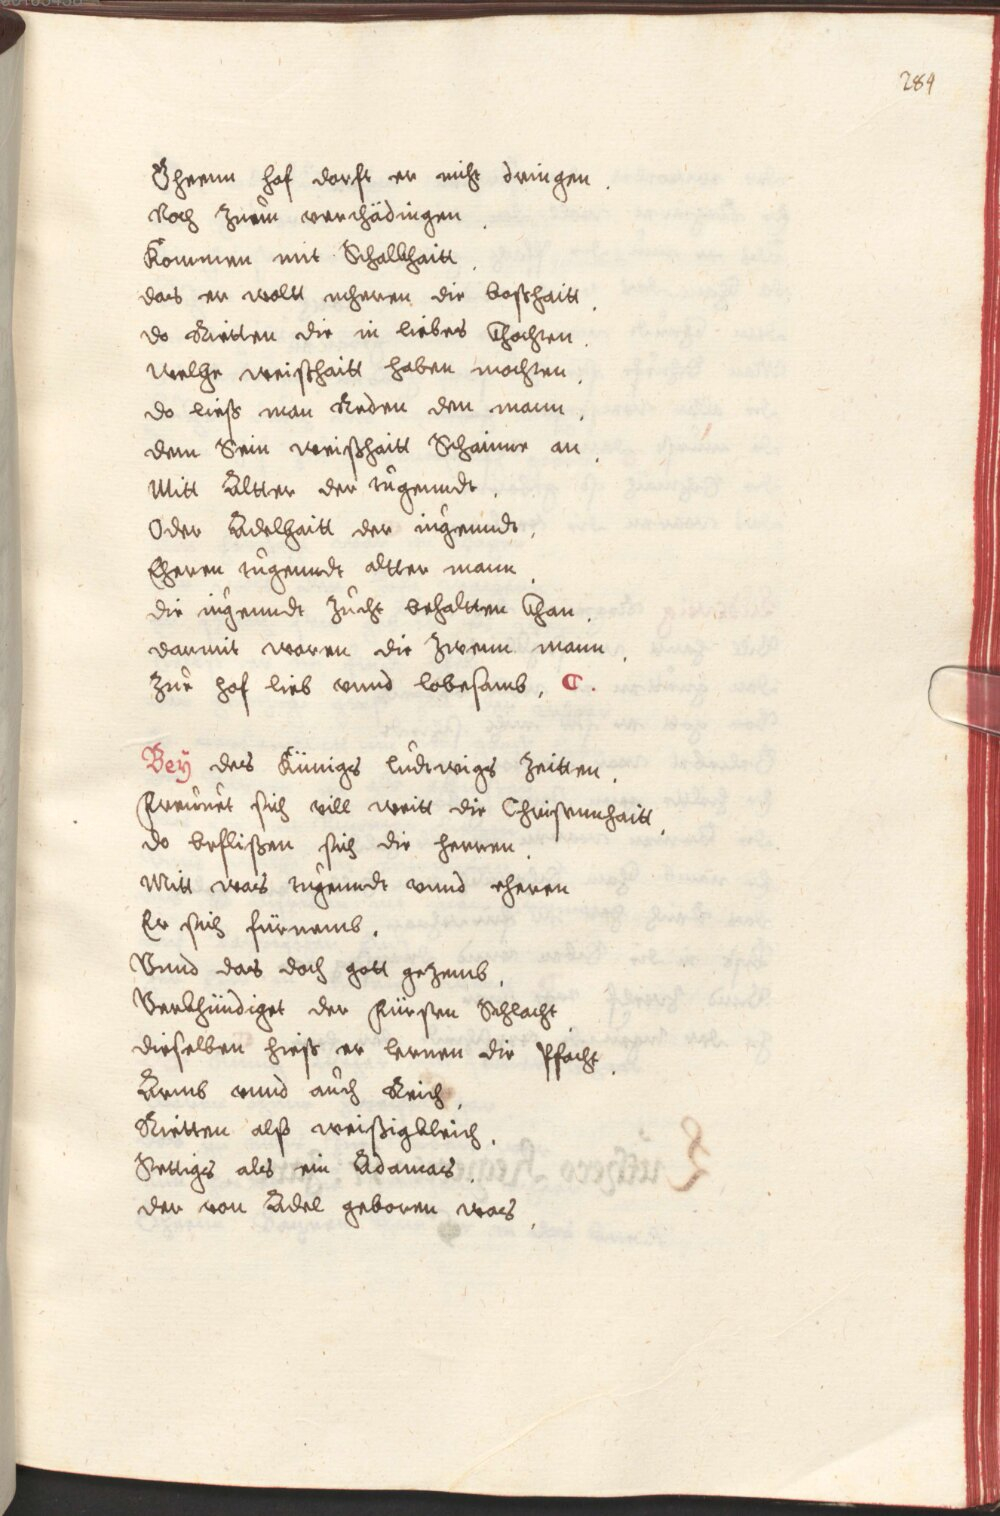 284
Gheenn hof dorfft er nicht dringen.
Noch Zuem verthädingen
Kommen mit Schalkhaitt.
das er wollt meheren die boßhaitt.
do Rietten die in liebes
welche weißhaitt haben mochten.
do ließ man Reden den mann.
dem Sein weißhaitt Schainne an.
Mitt Altter der tugenndt.
Oder Adelhaitt der iugenndt.
Eheren tugenndt altter mann.
die iugenndt Zucht behaltten khan.
darmit waren die Zwenn mann.
Zue hof lieb vnnd lobesamb. C.
Bey des Künigs ludtwigs Zeitten.
sich vill weitt die Christennhaitt.
do beflißen sich die herren.
Mitt was tugenndt vnnd eheren
Er sich fürnemb.
Vnnd das doch gott geZemb.
Verkhündiget der Fürsten Schlacht.
dieselben hieß er lernen die Pfacht.
Armb vnnd auch Reich.
Rietten alß weißigkleich.
Settigs als ein Adamas.
der von Adel geboren was.